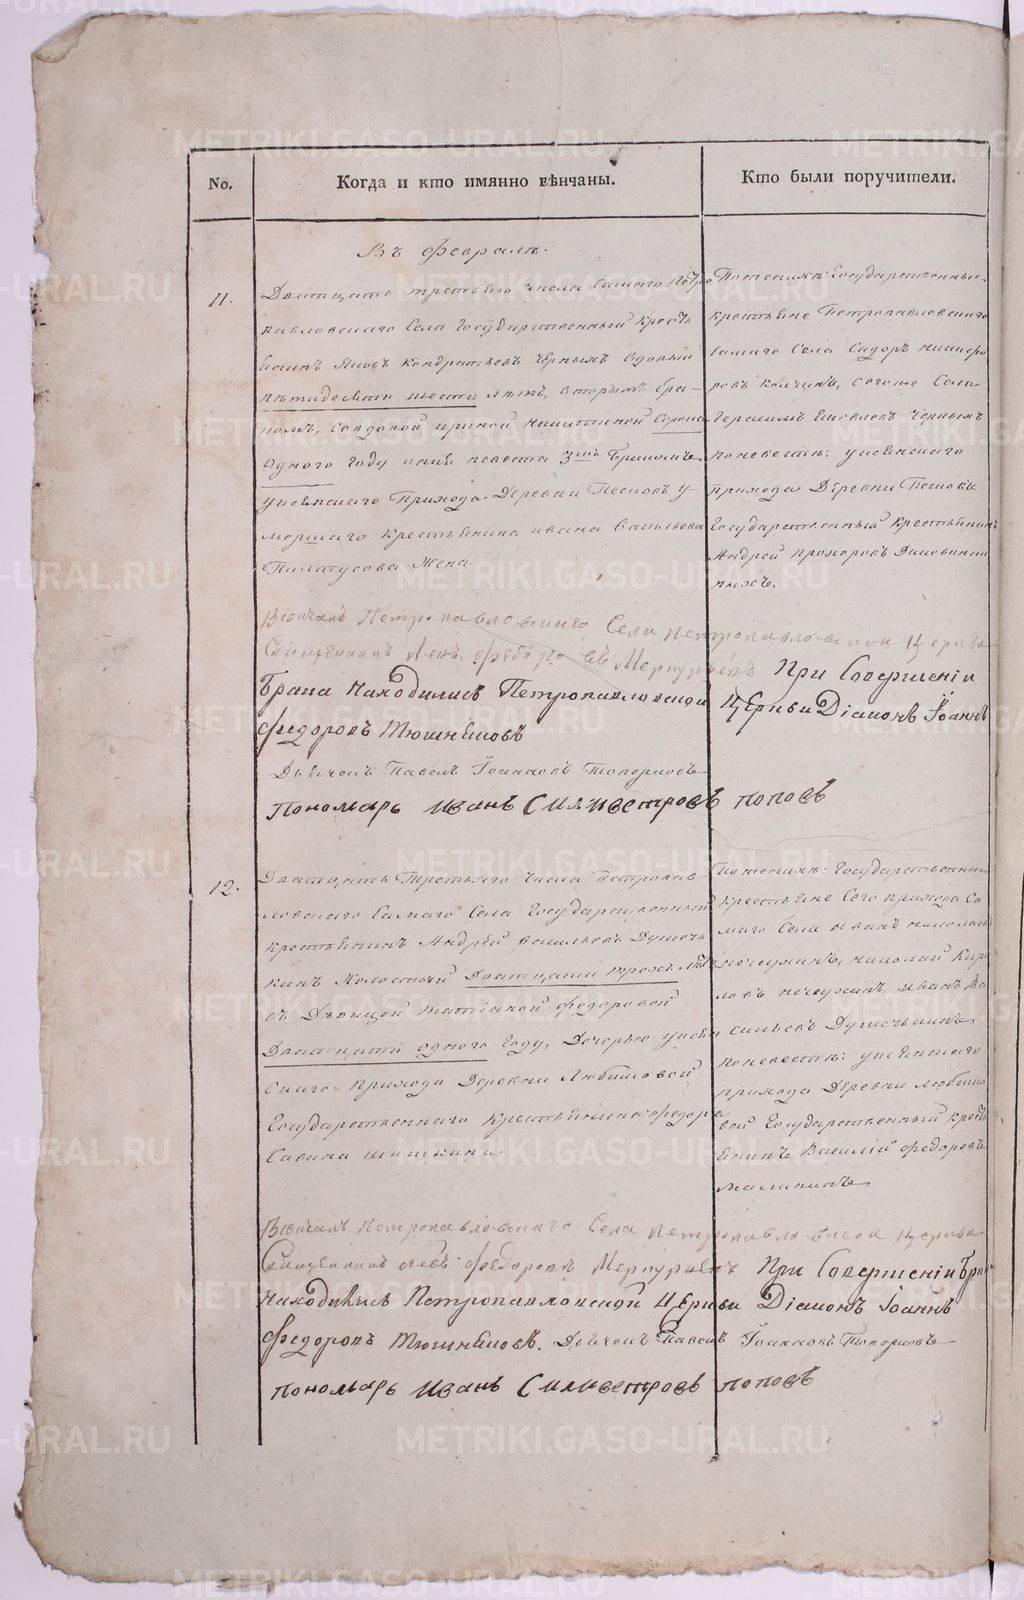 No.
Когда и кто имянно вѣнчаны.
Кто были поручители.
Въ февралѣ.
11.
Дватцать третьяго числа самаго Петро
павловскаго Села Государственный кресть
янинъ Яковъ Кондратьевъ Черныхъ вдовый
пятидесяти шести лѣтъ, вторымъ бра-
комъ, со вдовой Ириной Никитиной Сорока
одного году
3мъ бракомъ
прихода Деревни Песковъ у-
мершаго крестьянина Ивана Васильева
Пилатусова Жена.
По женихѣ: Государственные
крестьяне Петропавловскаго
самаго Села Сидоръ Никифо
ровъ сегоже Села
Герасимъ Яковлевъ Черныхъ
по невестѣ:
прихода Деревни Песковъ
Государственный крестьянинъ
Андрей Прохоровъ
ныхъ.
Вѣнчалъ Петропавловскаго Села Петропавловской церкви
Священникъ Левъ Федоровъ Меркурьевъ При Совершеніи
брака Находились Петропавловской Церкви Діаконъ Іоаннъ
Федоровъ Тюшняковъ
Дьячокъ Павелъ Іоанновъ Топорковъ
Пономарь Иванъ Силивестровъ Поповъ
12.
Дватцать Третьяго числа Петропав-
ловскаго самаго Села Государственный
крестьянинъ Андрей Васильевъ Душеч
кинъ Холостый Дватцати трехъ лѣтъ
съ Дѣвицей Татіаной Федоровой
Дватцати одного Году, Дочерью
скаго прихода Деревни Любимовой
Государственнаго крестьянина Федора
Савина Шишкина
По женихѣ: Государственные
крестьяне Сего прихода са
маго Села Иванъ Николаевъ
Нечеухинъ, Николай Кир
ловъ Нечеухинъ, Иванъ Ва
сильевъ Душечькинъ
по невестѣ:
прихода Деревни Любимо
вой Государственный кресть
янинъ Василій Федоровъ
Малининъ
Вѣнчалъ Петропавловскаго Села Петропавловской церкви
Священникъ Левъ Федоровъ Меркурьевъ При Совершеніи Брака
Находились Петропавловской Церкви Діаконъ Іоаннъ
Федоровъ Тюшняковъ. Дьячокъ Павелъ Іоанновъ Топорковъ
Пономарь Иванъ Силивестровъ Поповъ
METRIKI.GASO-URAL.RU